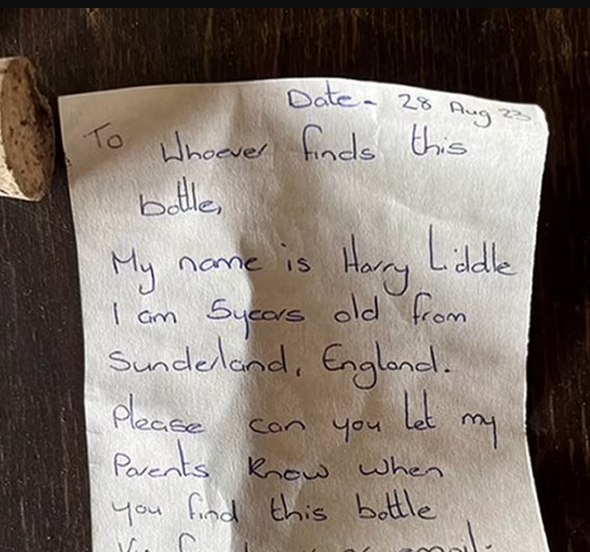 Date - 28 Aug 23
To Whoever finds this
bottle,
My name is Harry Liddle
I am 5years old from
Sunderland, England.
Please can you let my
Parents know when
you find this bottle